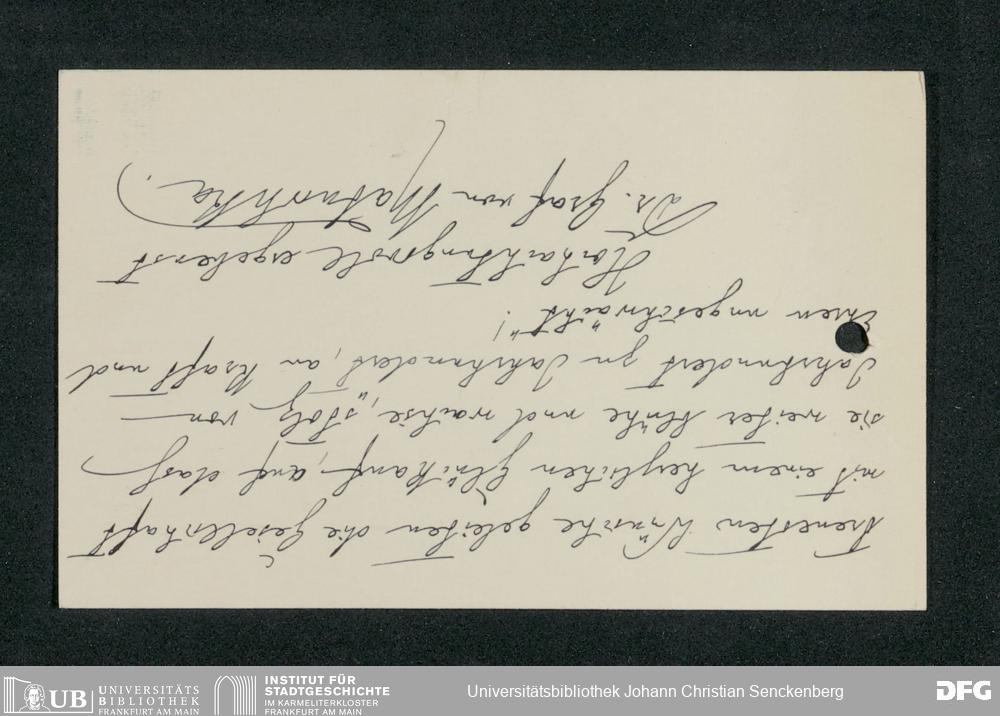 treuesten Wünsche geleiten die Gesellschaft
mit einem herzlichen Glückauf, auf dass
sie weiter blühe und wachse, „stolz von
Jahrhundert zu Jahrhundert, an Kraft und
Ehren ungeschwächt“!
Hochachtungsvoll ergebenst
Dr. Graf von Matuschka.
UB UNIVERSITÄTS
BIBLIOTHEK
FRANKFURT AM MAIN
INSTITUT FÜR
STADTGESCHICHTE
IM KARMELITERKLOSTER
FRANKFURT AM MAIN
Universitätsbibliothek Johann Christian Senckenberg
DFG